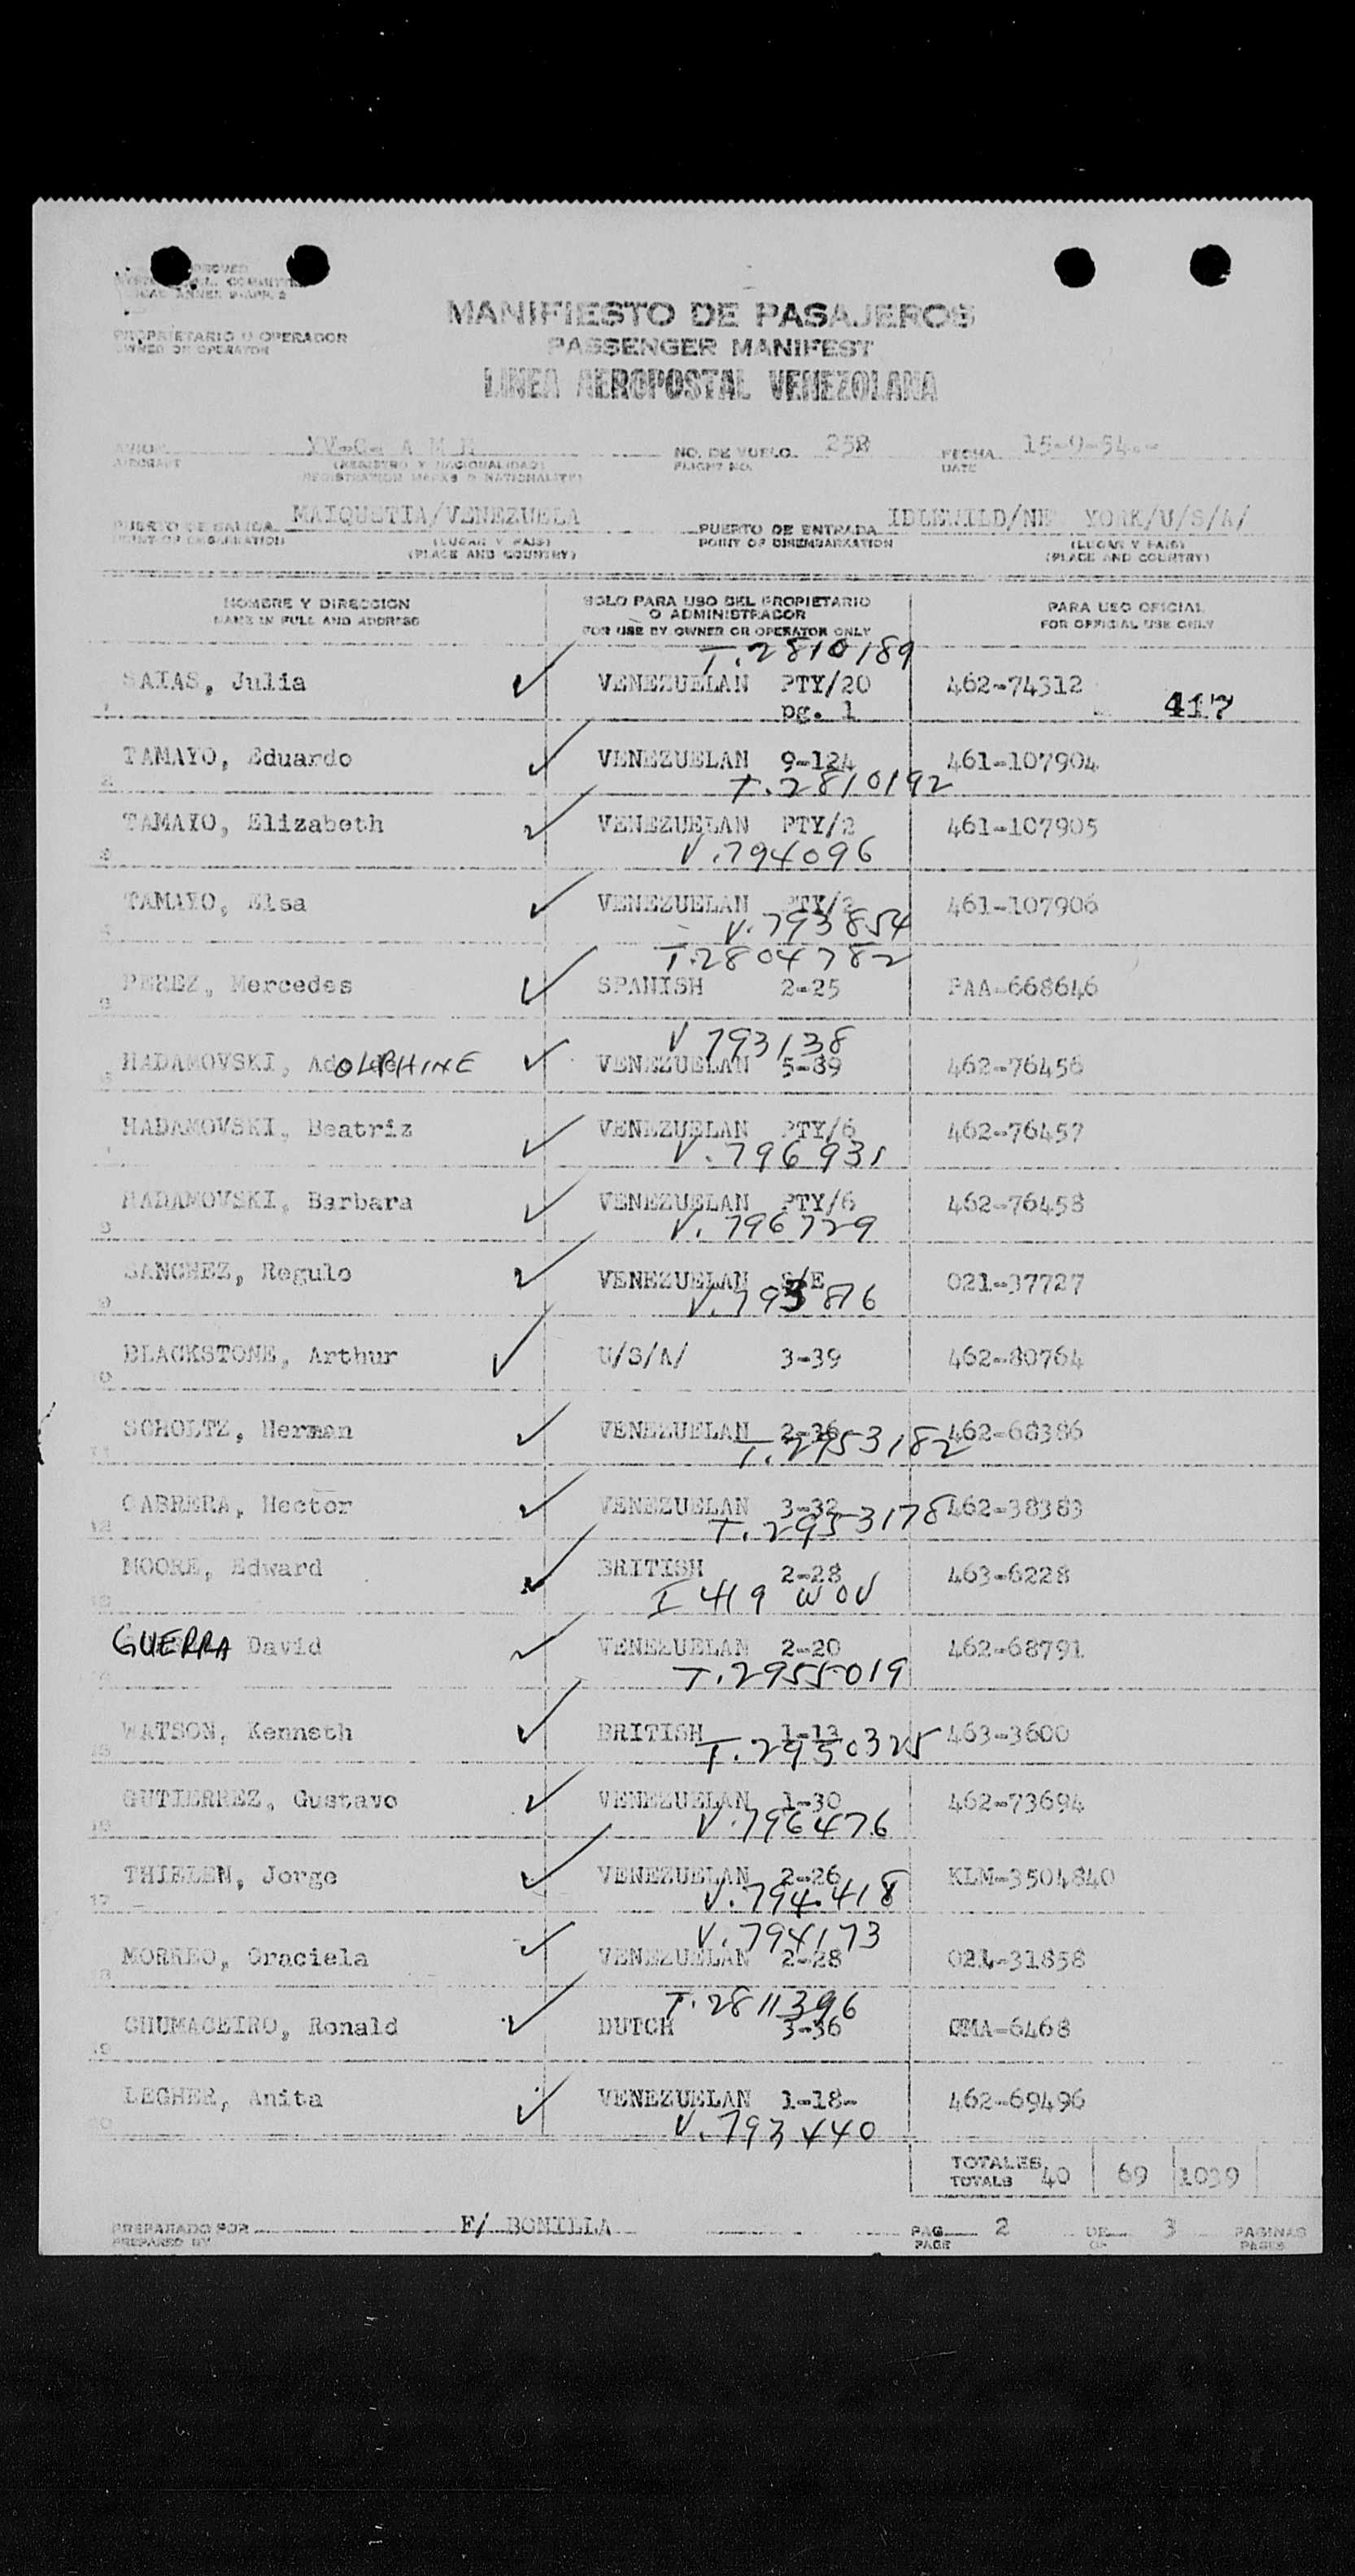 MANIFIESTO DE PASAJEROS
PROPRIETARIO U OPERADOR
OWNER OR OPERATOR
PASSENGER MANIFEST
LINEA AEROPOSTAL VENEZOLANA
AVION YV-C- A M
AIRCRAFT
(REGISTRO Y NACIONALIDAD)
REGISTRATION MARKS & NATIONALITY)
NO. DE VUELO 258
FLIGHT NO.
FECHA 15-9-54.-
DATE
PUERTO DE SALIDA MAIQUETIA/VENEZUELA
POINT OF EMBARKATION
(LUGAR Y PAIS)
(PLACE AND COUNTRY)
PUERTO DE ENTRADA IDLEWILD/NE YORK/U/S/A/
POINT OF DISEMBARKATION
(LUGAR Y PAIS)
(PLACE AND COUNTRY)
NOMBRE Y DIRECCION
NAME IN FULL AND ADDRESS
SOLO PARA USO DEL PROPIETARIO
O ADMINISTRADOR
FOR USE BY OWNER OR OPERATOR ONLY
PARA USO OFICIAL
FOR OFFICIAL USE ONLY
T.2810189
SAIAS, Julia VENEZUELAN PTY/20 462-74312
pg. 1 417
TAMAYO, Eduardo VENEZUELAN 9-124 461-107904
T.2810192
TAMAYO, Elizabeth VENEZUELAN PTY/2 461-107905
V.794096
TAMAYO, Elsa VENEZUELAN PTY/2 461-107906
V.793854
T.2804782
PEREZ, Mercedes SPANISH 2-25 PAA-668646
V 793138
HADAMOVSKI, AdOLPHINE VENEZUELAN 5-89 462-76456
HADAMOVSKI, Beatriz VENEZUELAN PTY/6 462-76457
V.796931
HADAMOVSKI, Barbara VENEZUELAN PTY/6 462-76458
V.796729
SANCHEZ, Regulo VENEZUELAN S/E 021-37727
V.793876
BLACKSTONE, Arthur U/S/A/ 3-39 462-80764
SCHOLTZ, Herman VENEZUELAN 2-36 462-68386
T.2953182
CABRERA, Hector VENEZUELAN 3-32 462-38383
T.2953178
MOORE, Edward BRITISH 2-28 463-6228
I 419 WOV
GUERRA David VENEZUELAN 2-20 462-68791
T.2955019
WATSON, Kenneth BRITISH 1-13 463-3600
T.2950325
GUTIERREZ, Gustavo VENEZUELAN 1-30 462-73694
V.796476
THIELEN, Jorge VENEZUELAN 2-26 KLM-3504840
V.794.418
V.794173
MORREO, Graciela VENEZUELAN 2-28 021-31858
T.2811396
CHUMACEIRO, Ronald DUTCH 3-36 CMA-6468
LEGHER, Anita VENEZUELAN 1-18- 462-69496
V.793440
TOTALES
TOTALS 40 69 1039
PREPARADO POR F/ BONILLA
PREPARED BY
PAG. 2 DE 3 PAGINAS
PAGE OF PAGES